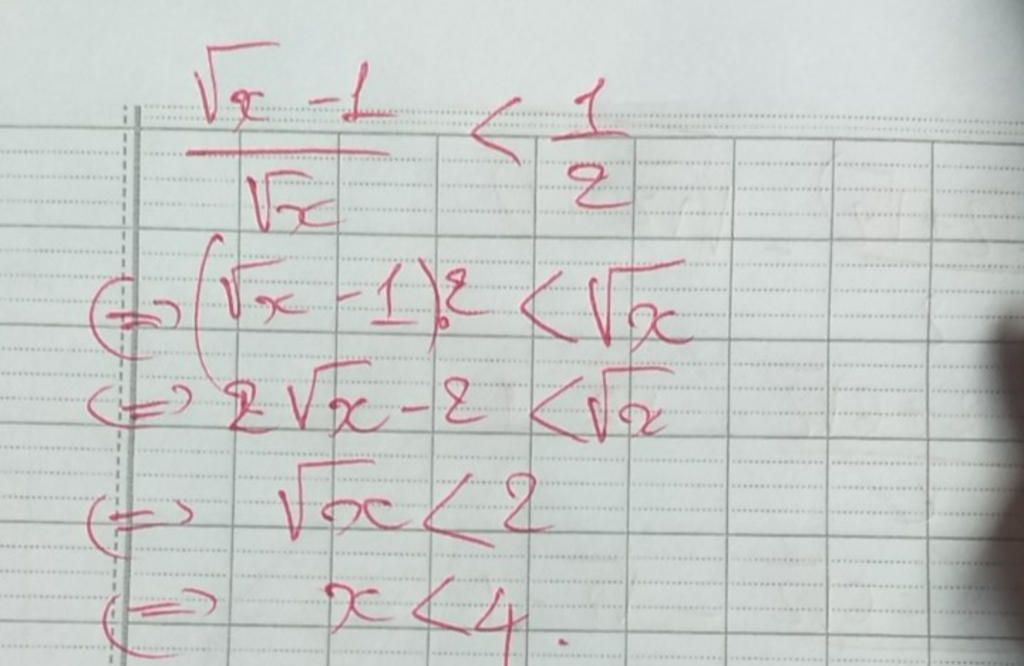 (√x - 1)/√x < 1/2
⇔ (√x - 1).2 < √x
⇔ 2√x - 2 < √x
⇔ √x < 2
⇔ x < 4.